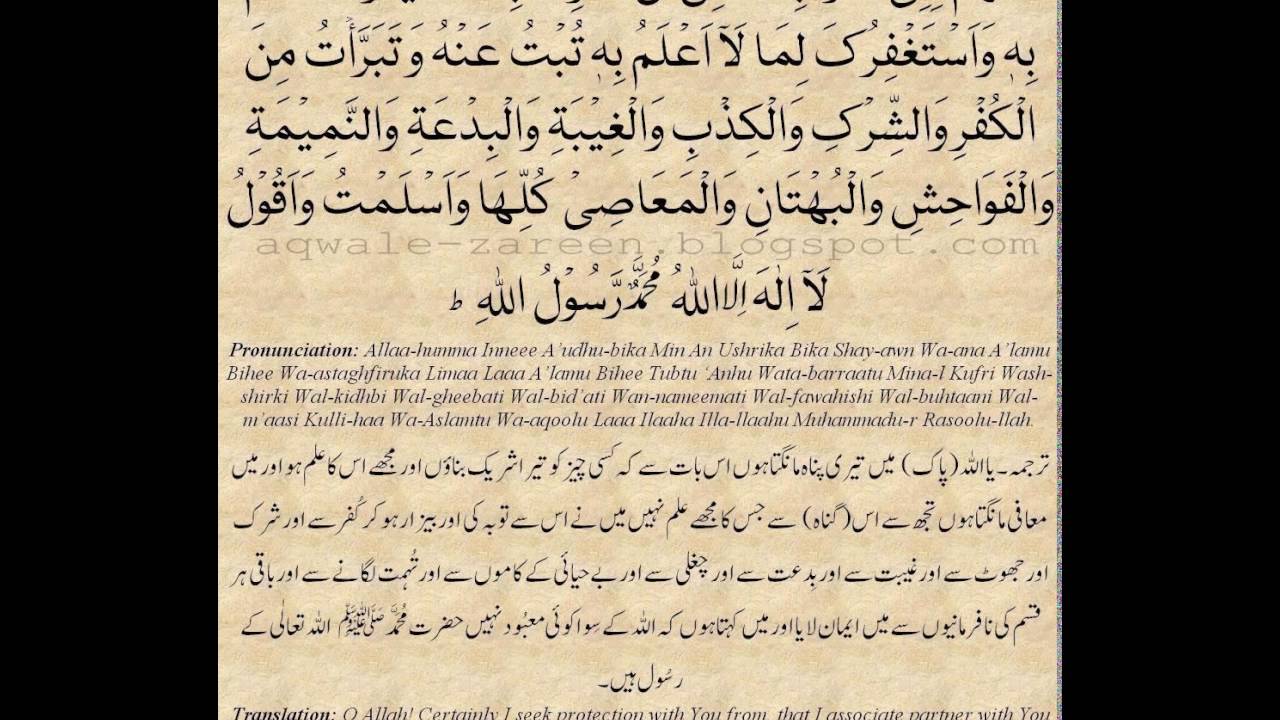 بِهٖ وَاَسْتَغْفِرُکَ لِمَا لَآ اَعْلَمُ بِهٖ تُبْتُ عَنْهُ وَ تَبَرَّأْتُ مِنَ
الْکُفْرِ وَالشِّرْکِ وَالْکِذْبِ وَالْغِيْبَةِ وَالْبِدْعَةِ وَالنَّمِيْمَةِ
وَالْفَوَاحِشِ وَالْبُهْتَانِ وَالْمَعَاصِیْ کُلِّهَا وَاَسْلَمْتُ وَاَقُوْلُ
aqwale-zareen.blogspot.com
لَآ اِلٰهَ اِلَّا اللهُ مُحَمَّدٌ رَّسُوْلُ اللهِ ط
Pronunciation: Allaa-humma Inneee A’udhu-bika Min An Ushrika Bika Shay-awn Wa-ana A’lamu
Bihee Wa-astaghfiruka Limaa Laaa A’lamu Bihee Tubtu ‘Anhu Wata-barraatu Mina-l Kufri Wash-
shirki Wal-kidhbi Wal-gheebati Wal-bid’ati Wan-nameemati Wal-fawahishi Wal-buhtaani Wal-
m’aasi Kulli-haa Wa-Aslamtu Wa-aqoolu Laaa Ilaaha Illa-llaahu Muhammadu-r Rasoolu-llah.
ترجمہ۔ یا اللہ (پاک) میں تیری پناہ مانگتا ہوں اس بات سے کہ کسی چیز کو تیرا شریک بناؤں اور مجھے اس کا علم ہو اور میں
معافی مانگتا ہوں تجھ سے اس (گناہ) سے جس کا مجھے علم نہیں میں نے اس سے توبہ کی اور بیزار ہو کر کُفر سے اور شرک
اور جھوٹ سے اور غیبت سے اور بِدعت سے اور چغلی سے اور بے حیائی کے کاموں سے اور تُہمت لگانے سے اور باقی ہر
قسم کی نافرمانیوں سے میں ایمان لایا اور میں کہتا ہوں کہ اللہ کے سِوا کوئی معبُود نہیں حضرت مُحمَّد ﷺ اللہ تعالٰی کے
رسُول ہیں۔
Translation: O Allah! Certainly I seek protection with You from, that I associate partner with You